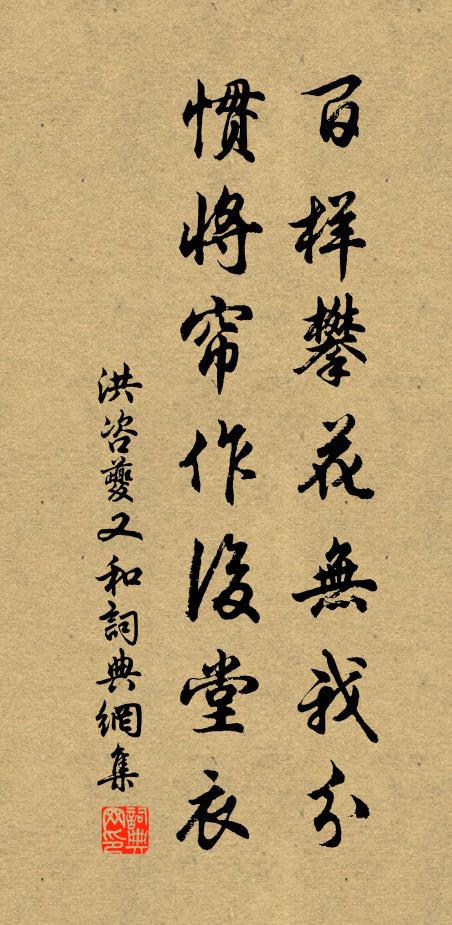 百样攀花無我分
慣將帘作後堂衣
洪咨夔又和詞典網集
詞典網印